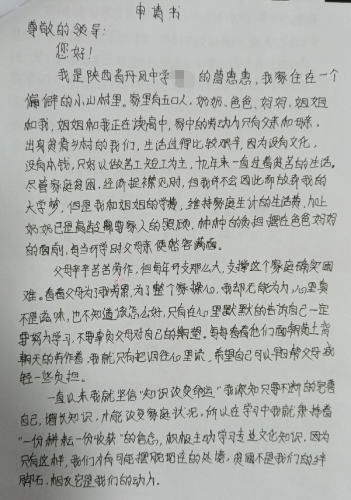 申请书
尊敬的领导:
您好!
我是陕西省丹凤中学 的曹惠惠,我家住在一个
偏僻的小山村里。家里有五口人,奶奶、爸爸、妈妈、姐姐
和我,姐姐和我正在读高中,家中的劳动力只有父亲和母亲,
出身贫寒乡村的我们,生活过得比较艰辛,因为没有文化,
没有本钱,只好以做苦工短工为主,几年来一直过着贫苦的生活。
尽管家庭贫困,经济捉襟见肘,但我并不会因此而放弃我的
大学梦,但是我和姐姐的学费,维持家庭生计的生活费,加上
奶奶已是高龄还需要家人的照顾,种种的负担摆在爸爸妈妈
的面前,每当怀学时父母亲便愁容满面。
父母辛辛苦苦劳作,但每年开支那么大,支撑这个家庭确实困
难。看着父母为了我劳累,为了整个家操心,我却无能为力,心里真
不是滋味,也不知道该怎么好,只有在心里默默的告诉自己一定
要努力学习,不要辜负父母对自己的期望。每每看着他们面朝黄土背
朝天的劳作着,我就只有把泪往心里流,希望自己可以早日帮父母减
轻一些负担。
一直以来我就坚信“知识改变命运”我深知只要不断的完善
自己,增长知识,才能改变家庭状况,所以在学习中我就秉持着
“一份耕耘一份收获”的信念,积极主动学习专业文化知识,因为
只有这样,我们才有可能摆脱困迫的处境,贫困不是我们的绊
脚石,相反它是我们的动力。